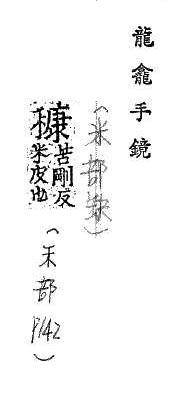 龍龕手鏡
（米部缺）
穅苦剛反
米皮也
（禾部
P142）